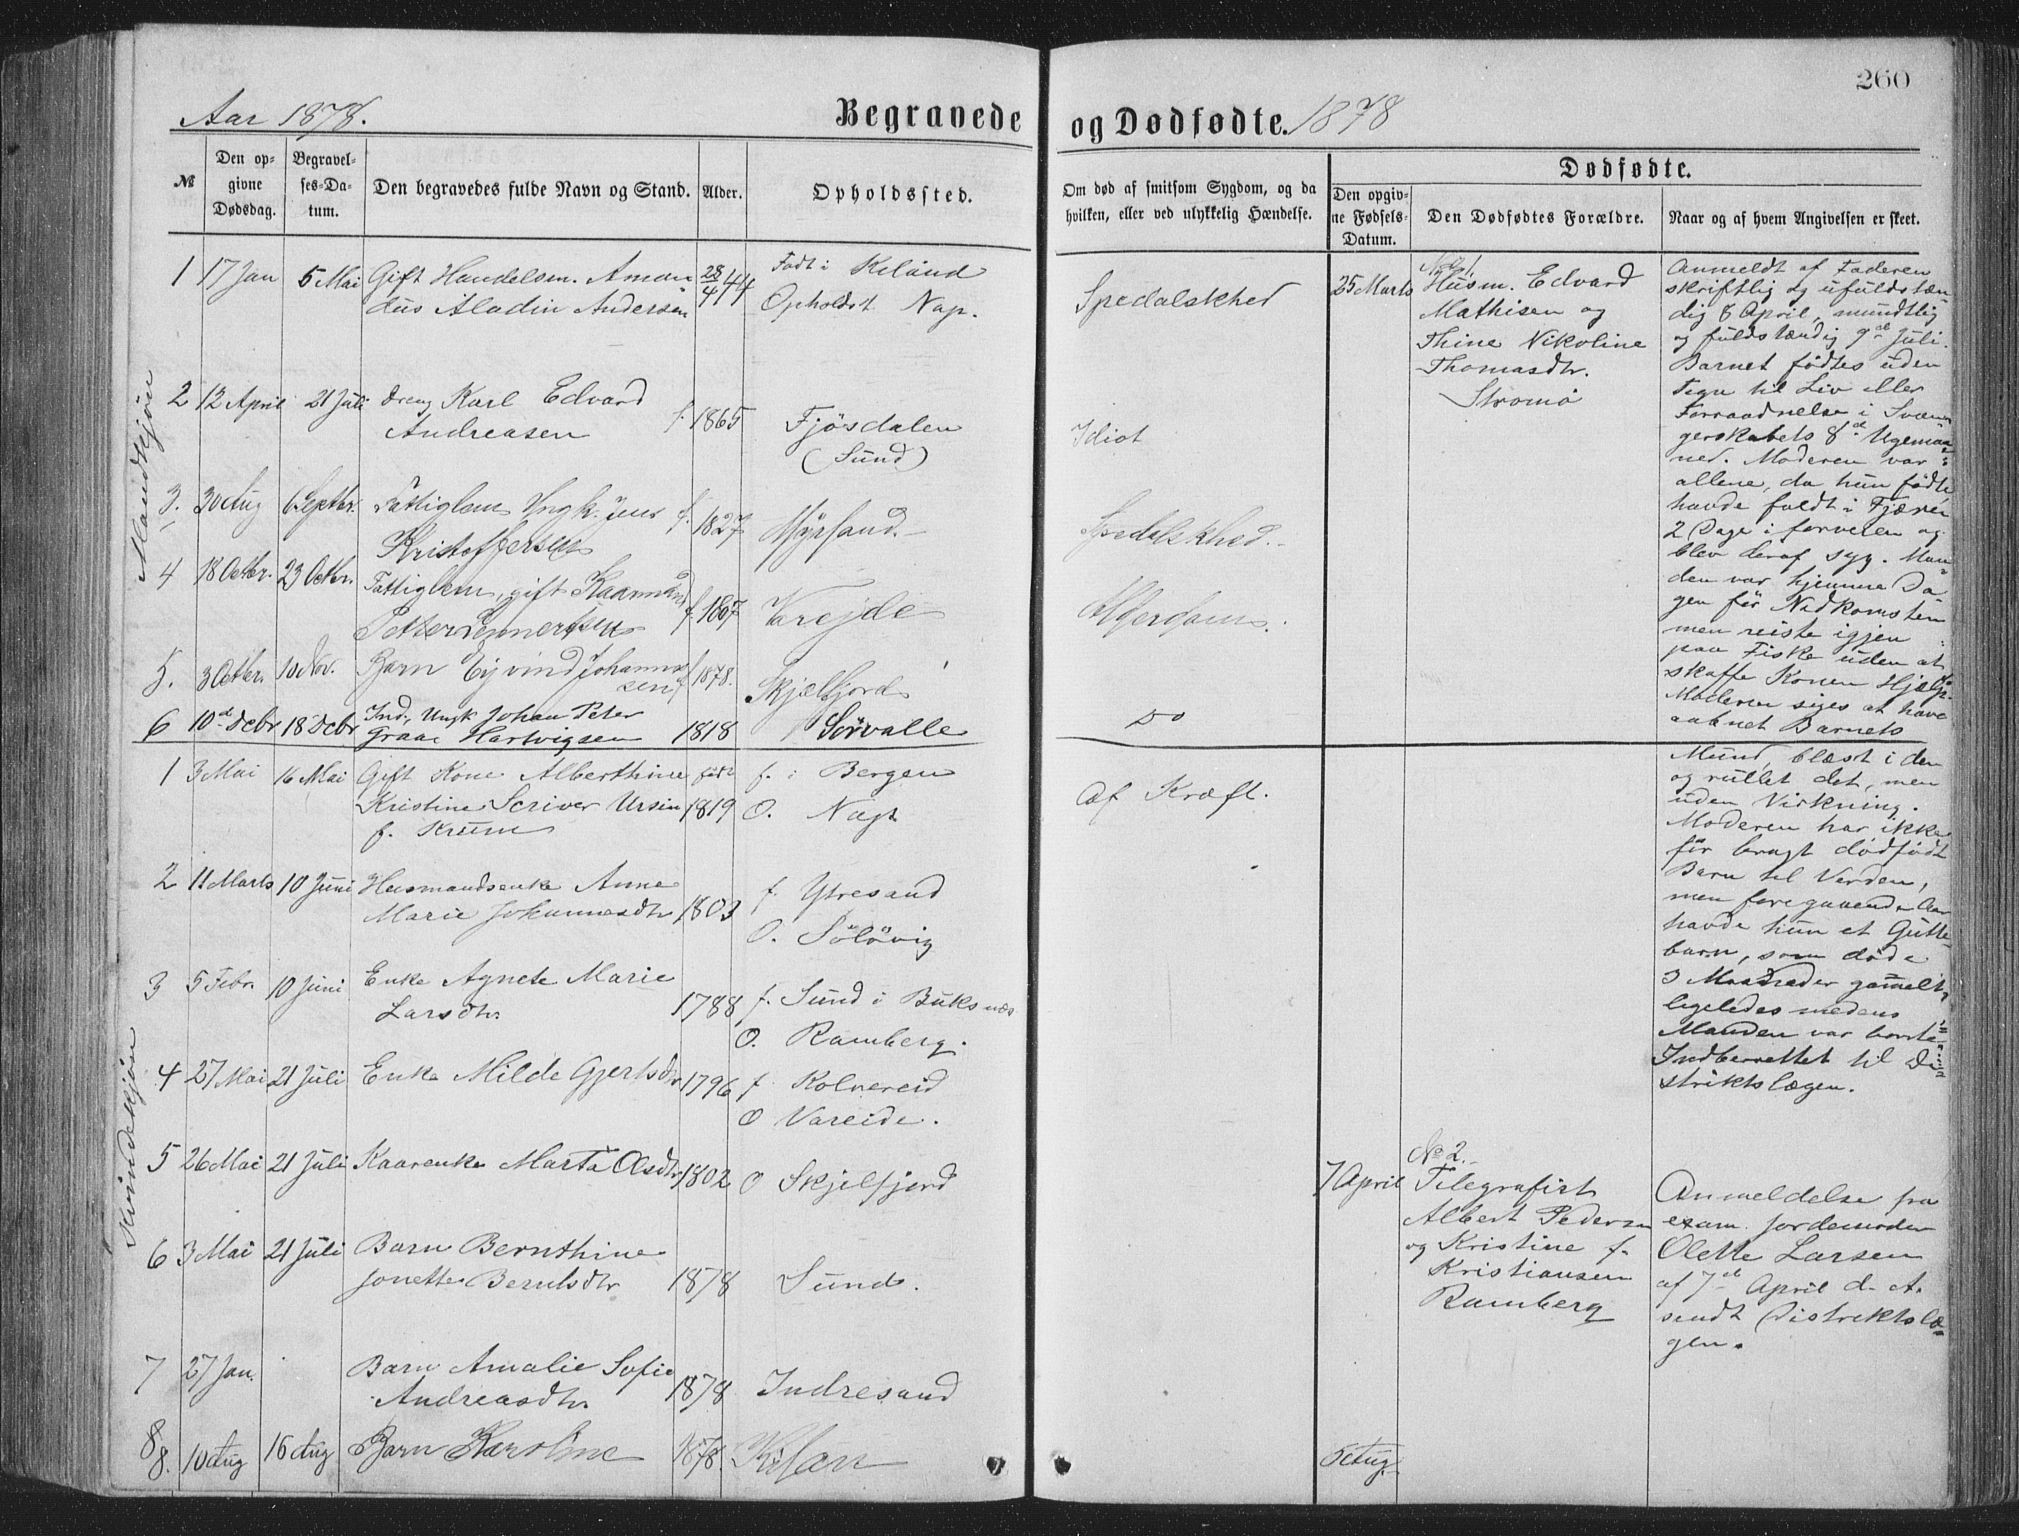 260
Aar 1878.
Begravede
og Dødfødte. 1878
№
Den opgivne Dødsdag.
Begravelses-Datum.
Den begravedes fulde Navn og Stand.
Alder.
Opholdssted.
Om død af smitsom Sygdom, og da hvilken, eller ved ulykkelig Hændelse.
Dødfødte.
Den opgivne Fødsels-Datum.
Den Dødfødtes Forældre.
Naar og af hvem Angivelsen er skeet.
Mandkjøn
1 17 Jan 5 Mai Gift Handelsm. Aman-
dus Aladin Andersen
28/4 44
Født i Reland
Opholdst. Nap.
Spedalskhed
2 12 April 21 Juli Dreng Karl Edvard
Andreasen
f. 1865
Fjøsdalen
(Sund)
Idiot
3. 30 Aug 6 Septbr. Fattiglem Ungk. Jens
Kristoffersen
f. 1827
Myrland.
Spedalskhed.
4 18 Octbr. 23 Octbr. Fattiglem, gift Kaarmand
Petter Lennertsen
f. 1807
Vrejde
Alderdom.
5. 3 Octbr. 10 Nov. Barn Ejvind Johanne-
sen
f 1878.
Skjelfjord
6 10d Debr 18 Debr Ind. Ungk Johan Peter
Graae Hartvigsen
1818
Sørvalle
Do
Kvindekjøn
1 3 Mai 16 Mai Gift Kone Alberthine
Kristine Scriver Ursin
f. Krum
født
1819
f. i Bergen
O. Nap
af Kræft.
2 11 Marts 10 Juni Husmandsenke Anne
Marie Johannesdtr
1803
f. Ytresand
O. Sölövig
3 5 Febr. 10 Juni Enke Agnete Marie
Larsdtr.
1788
f. Sund i Buksnæs
O. Ramberg.
4 27 Mai 21 Juli Enke Milde Gjertsdtr
1796
f Kolvereid
O Vareide.
5 26 Mai 21 Juli Kaarenke Marta Olsdtr
1802
O Skjelfjord
6 3 Mai 21 Juli Barn Bernthine
Jonette Berntsdtr
1878
Sund.
7 27 Jan. Barn Amalie Sofie
Andreasdtr.
1878
Indresand
8
8. 10 Aug 16 Aug Barn Karoline
1878.
25 Marts
No 1
Husm. Edvard
Mathisen og
Thine Nikoline
Thomasdtr.
Strømø
Anmeldt af Faderen
skriftlig og ufuldstæn-
dig 6 April, mundtlig
og fuldstændig 9de Juli.
Barnet fødtes uden
Tegn til Liv eller
Forraadnelse i Svan-
gerskabets 8d Ugemaa-
ned. Moderen var
allene, da hun fødte
havde faldt i Fjæren
2 Dage i forveien og
blev deraf syg. Man-
den var hjemme Da-
gen før Nedkomsten
men reiste igjen
paa Fiske uden at
skaffe Konen Hjælp.
Moderen siges at have
aabnet Barnets
Mund, blæst i den
og rullet det, men
uden Virkning.
Moderen har ikke
før bragt dødfødt
Barn til Verden,
men foregaaende Aar
havde hun et Gutte-
barn, som døde
3 Maaneder gamelt,
ligeledes medens
Manden var borte.
Indberettet til Di-
striktslægen.
7 April
No 2.
Telegrafist
Albert Pedersen
og Kristine f.
Kristiansen
Ramberg
Anmeldelse fra
exam. Jordemoder
Olette Larsen
af 7d April d. A.
sendt Distriktslæ-
gen.
5 Aug.